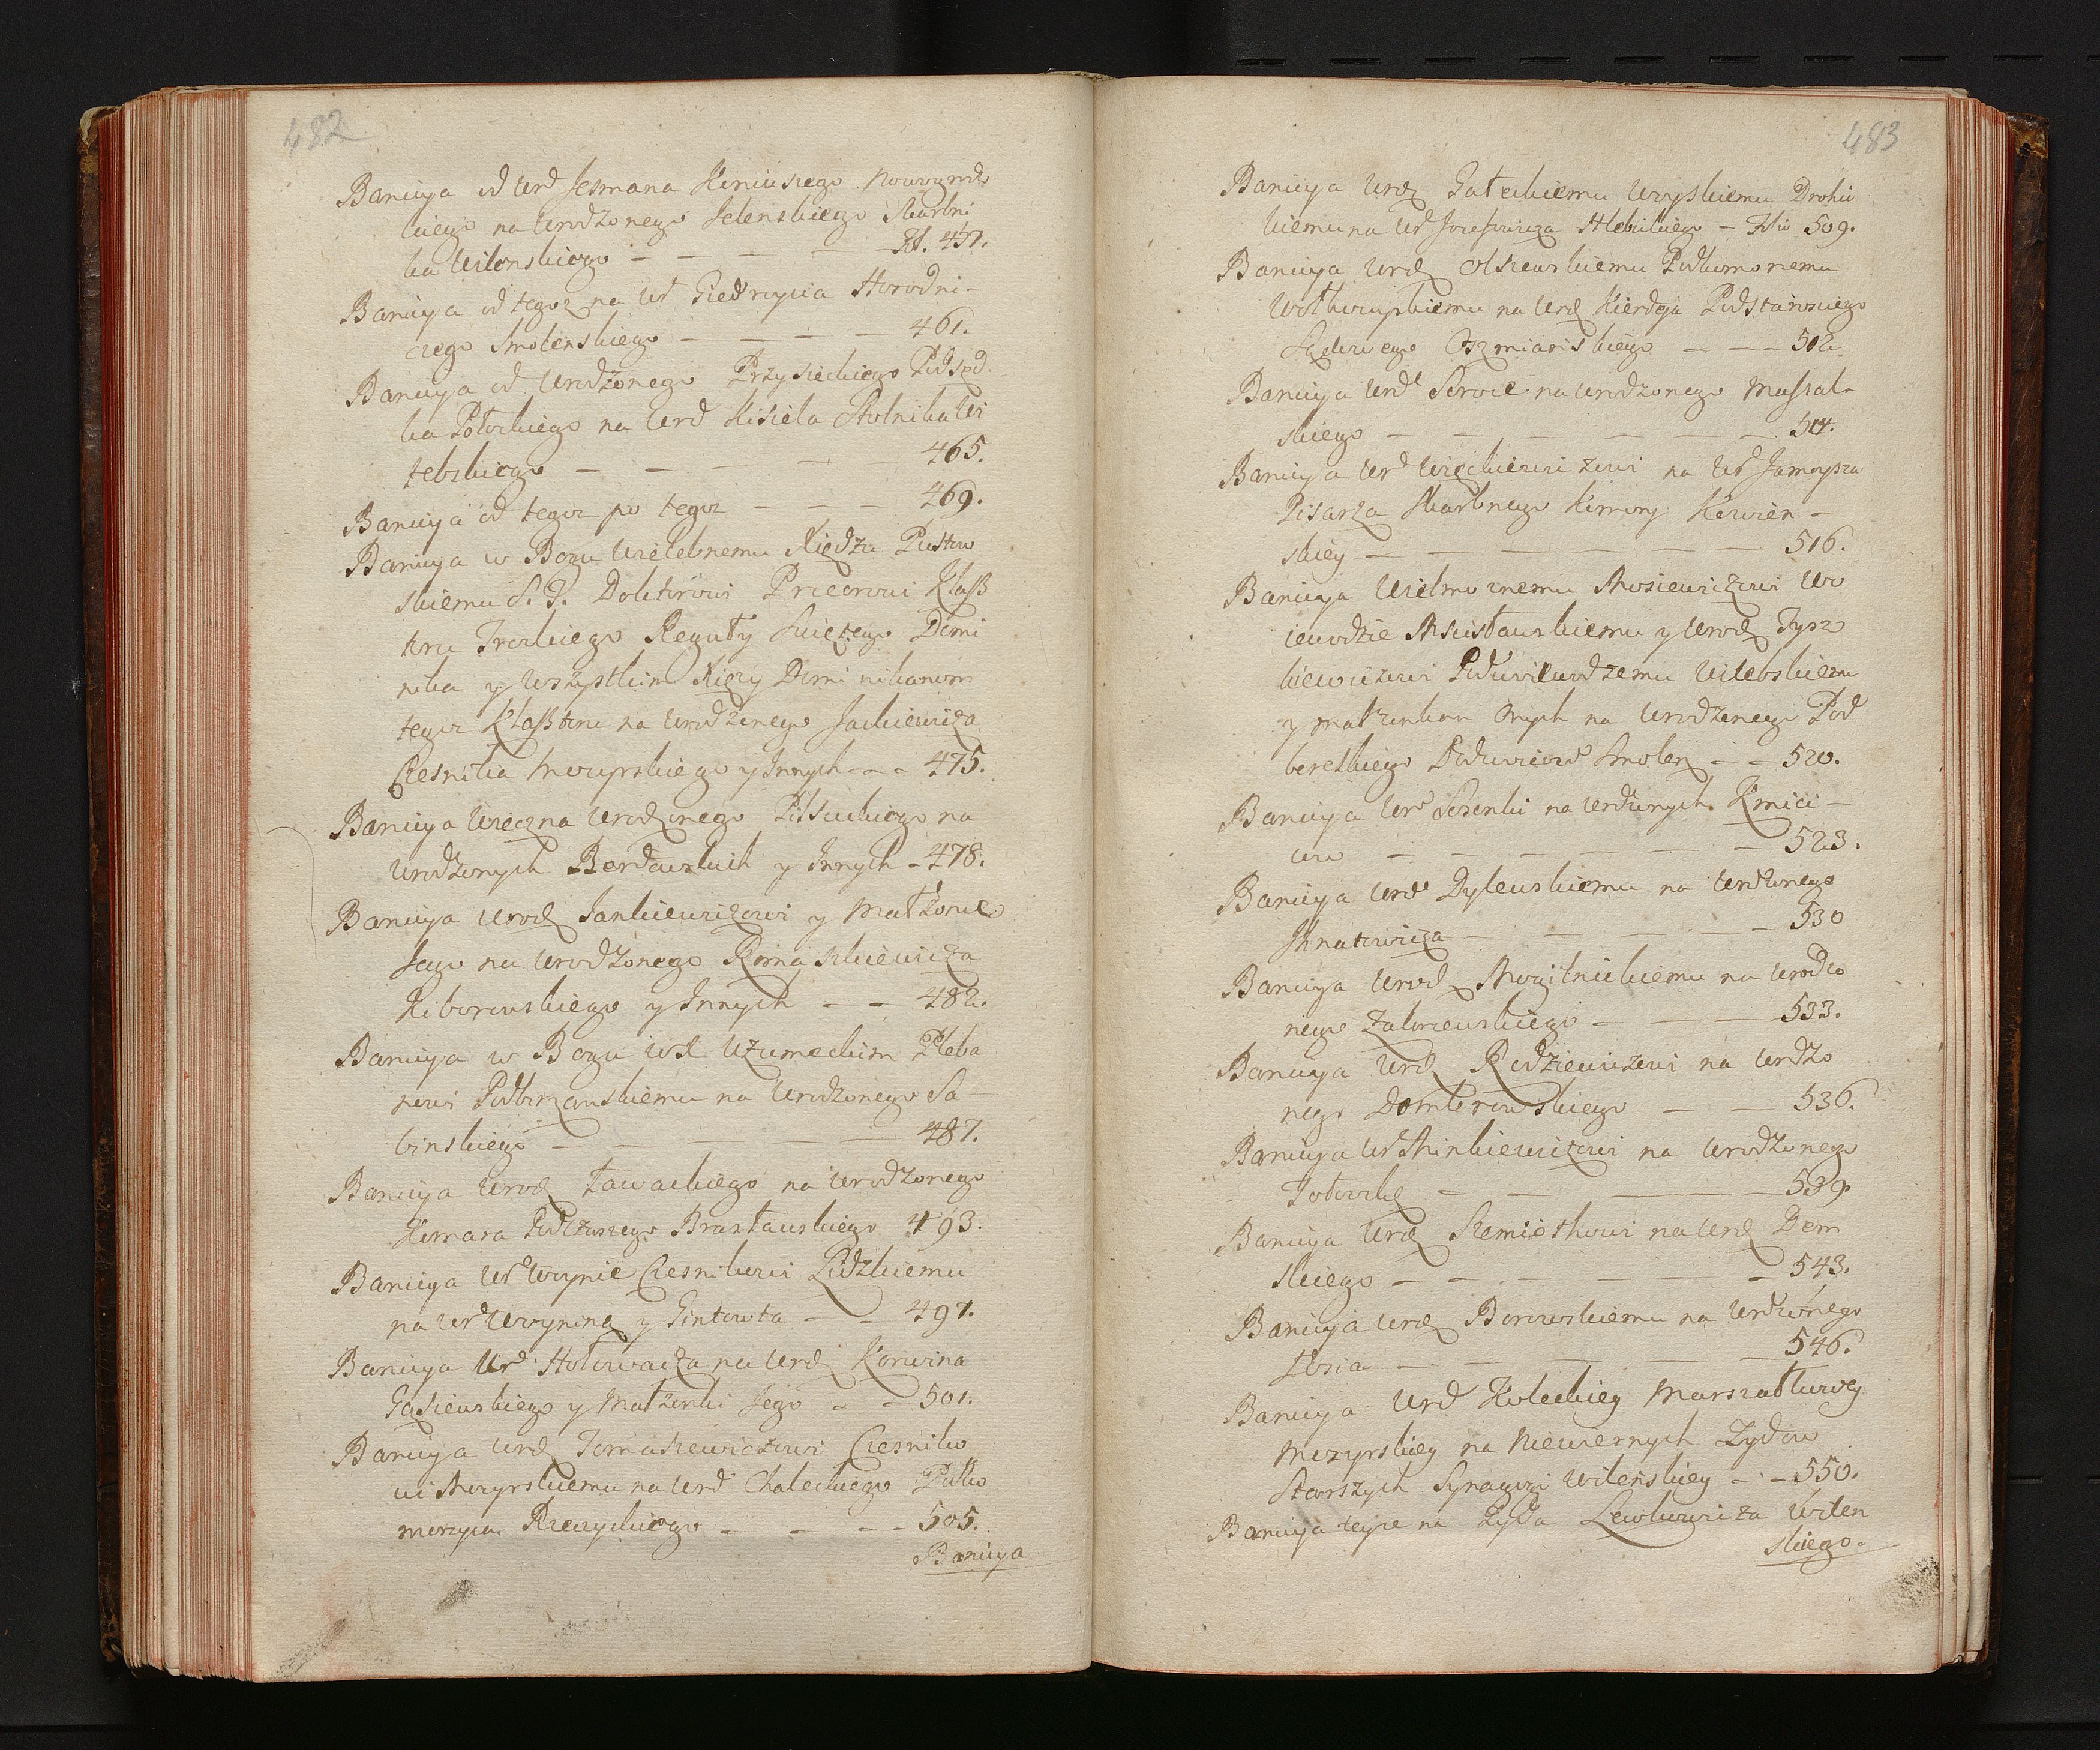 482
Banicya od Urd Jesmana Koniuszego Nowogrodz
kiego na Urodzonego Jelenskiego Skarbni
ka Wilenskiego — — — — Fol. 457.
Banicya od tegoz na Ur Giedroycia Horodni-
czego Smolenskiego — — — — 461.
Banicya od Urodzonego Przysieckiego Podsęd
ka Połockiego na Urd Kisiela Stolnika Wi
tebskiego — — — — 465.
Banicya od tegoz po tegoz — — — 469.
Banicya w Bogu Wielebnemu Xiędzu Pustow
skiemu S. T. Doktorowi Przeorowi Klasz
toru Trockiego Reguły Swiętego Domi
nika y Wszystkim Xięży Dominikanom
tegoz Klasztoru na Urodzonego Jackiewicza
Czesnika Mozyrskiego y Innych — — 475.
Banicya Wieczna Urodzonego Piłsudskiego na
Urodzonych Berdowskich y Innych — 478.
Banicya Urod Jankiewiczowi y Małżonce
Jego na Urodzonego Romaszkiewicza
Kiborowskiego y Innych — — 482.
Banicya w Bogu Wel Uzumeckim Pleba
nowi Podbirzanskiemu na Urodzonego Sa-
binskiego — — — — 487.
Banicya Urod Zawackiego na Urodzonego
Komara Podczaszego Brasławskiego 493.
Banicya Ur Woynie Czesnikowi Lidzkiemu
na Ur Woyninę y Gintowta — — 497.
Banicya Ur Hołowacza na Urd Korwina
Gąsiewskiego y Małżonki Jego — — 501.
Banicya Urd Tomaszewiczowi Czesniko
wi Mozyrskiemu na Urd Chaleckiego Pułko
morzyca Rzeczyckiego — — — 505.
Banicya
483
Banicya Urd Gateckiemu Woyskiemu Drohic
kiemu na Ur Jozefowicza Hlebickiego — Folio 509.
Banicya Urd Olszewskiemu Podkomoremu
Wołkowyskiemu na Urd Kierdeja Podstarosciego
Sądowego Oszmianskiego — — — 512.
Banicya Urd Serwie na Urodzonego Massal-
skiego — — — — — — 514.
Banicya Urd Więckiewiczowi na Ur Jamoysza
Pisarza Skarbnego Komory Kowien-
skiey — — — — — — 516.
Banicya Wielmoznemu Mosiewiczowi Wo
iewodzie Mscisławskiemu y Urod Tysz
kiewiczowi Podwoiewodzemu Witebskiemu
y małzonkom Onych na Urodzonego Pod
bereskiego Podwoiewd Smolen — — 520.
Banicya Ur Sosenki na Urdzonych Kmici-
cow — — — — — — 523.
Banicya Urd Dylewskiemu na Urdzonego
Ihnatowicza — — — — — 530
Banicya Urod Moygitnickiemu na Urodzo
nego Zaborowskiego — — — 533.
Banicya Urd Radziewiczowi na Urdzo
nego Domberowskiego — — 536.
Banicya Ur Minkiewiczowi na Urodzonego
Jotowkę — — — — 539
Banicya Urd Siemiotkowi na Urd Dem
skiego — — — — — — 543.
Banicya Urd Borowskiemu na Urdzonego
Ilzia — — — — — 546.
Banicya Urd Koleckiey Marszałkowey
Mozyrskiey na Niewiernych Zydow
Starszych Synagogi Wilenskiey — — 550.
Banicya teyze na Zyda Lewkowicza Wilen
skiego.